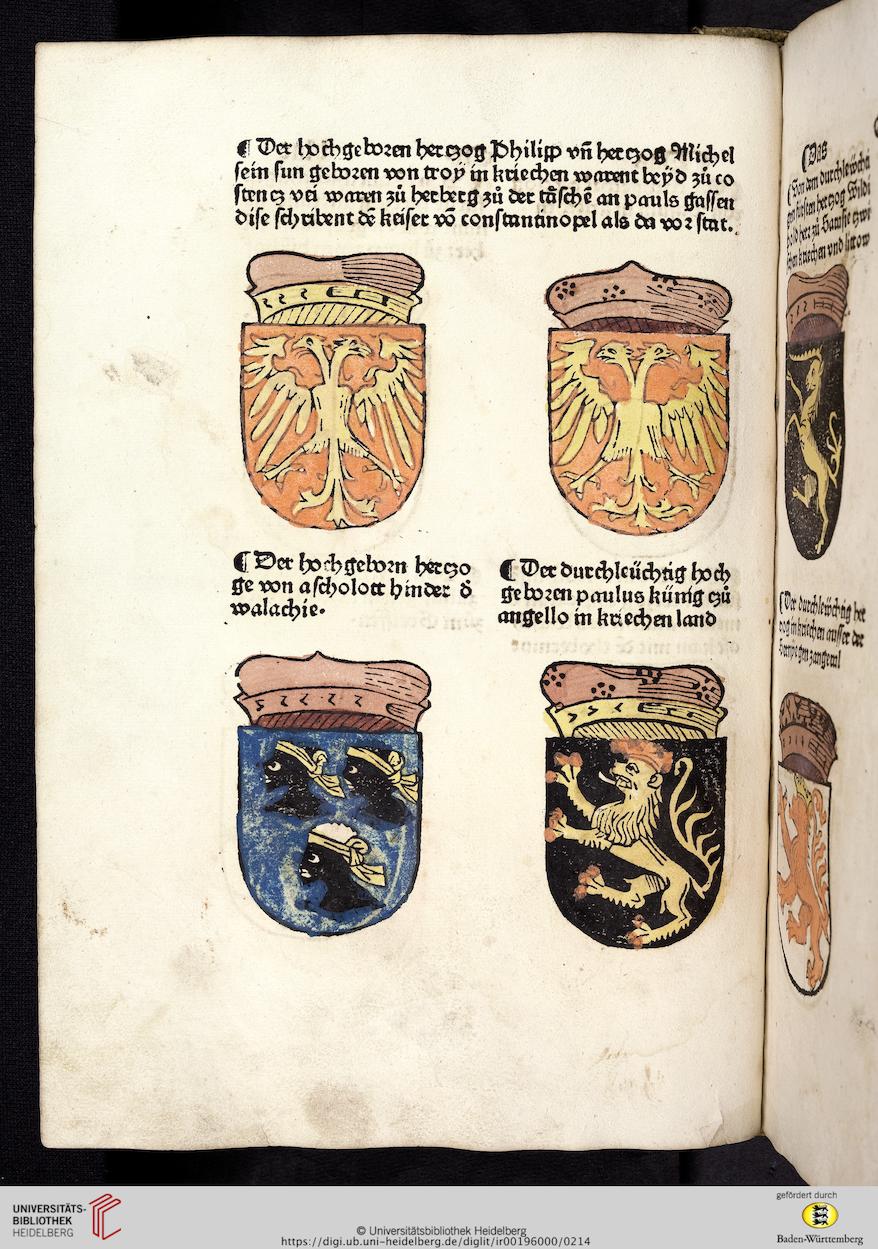 ¶ Der hochgeboren herczog Philipp vñ herczog Michel
sein sun geboren von troÿ in kriechen warent beÿd zů co
stencz vñ waren zů herberg zů der tãschẽ an pauls gassen
dise schribent dẽ keiser võ constantinopel als da vor stat.
¶ Der hochgeborn herczo
ge von ascholott hinder d̕
walachie.
¶ Der durchleüchtig hoch
geboren paulus künig czů
angello in kriechen land
¶ Das
¶ Von dem durchleüchti
gen fürsten herczog
kriechen vnd
¶ Der durchleüchtig her
czog in kriechen ausser der
UNIVERSITÄTS-
BIBLIOTHEK
HEIDELBERG
© Universitätsbibliothek Heidelberg
https://digi.ub.uni-heidelberg.de/diglit/ir00196000/0214
gefördert durch
Baden-Württemberg